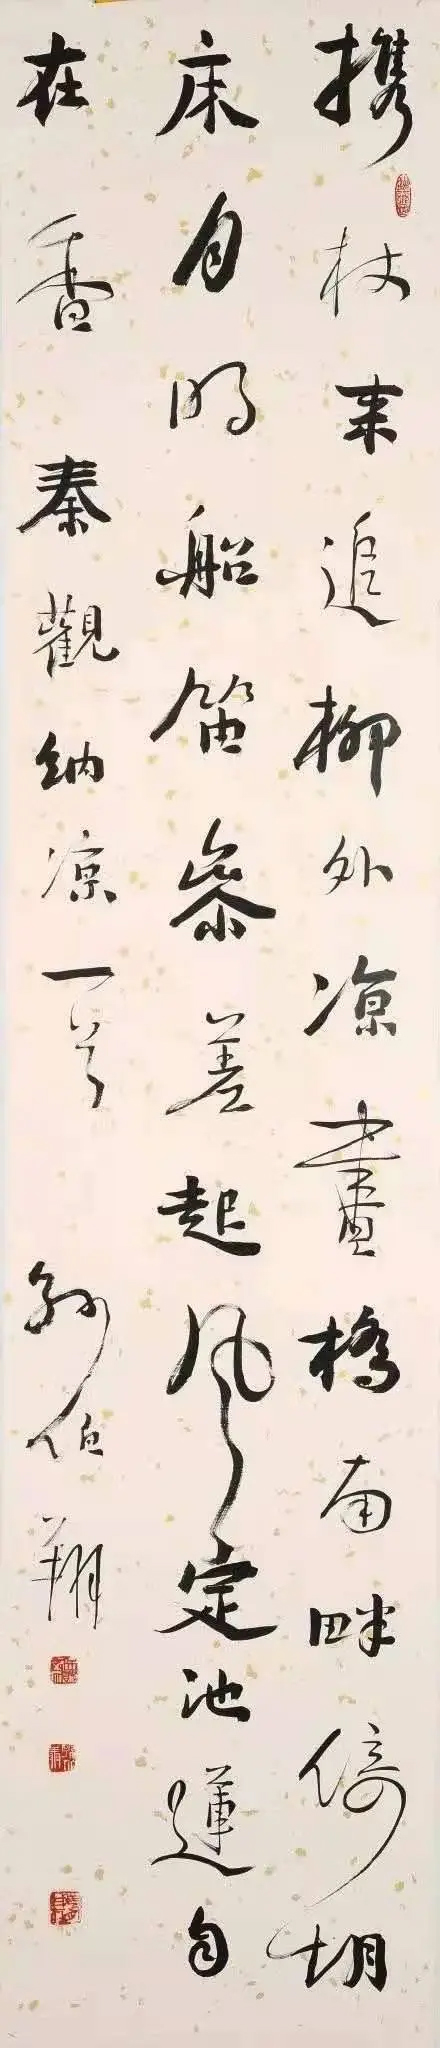 携杖来追柳外凉畫橋南畔倚胡
床月明船笛参差起风定池蓮自
在香 秦觀纳凉一首 孙伯翔